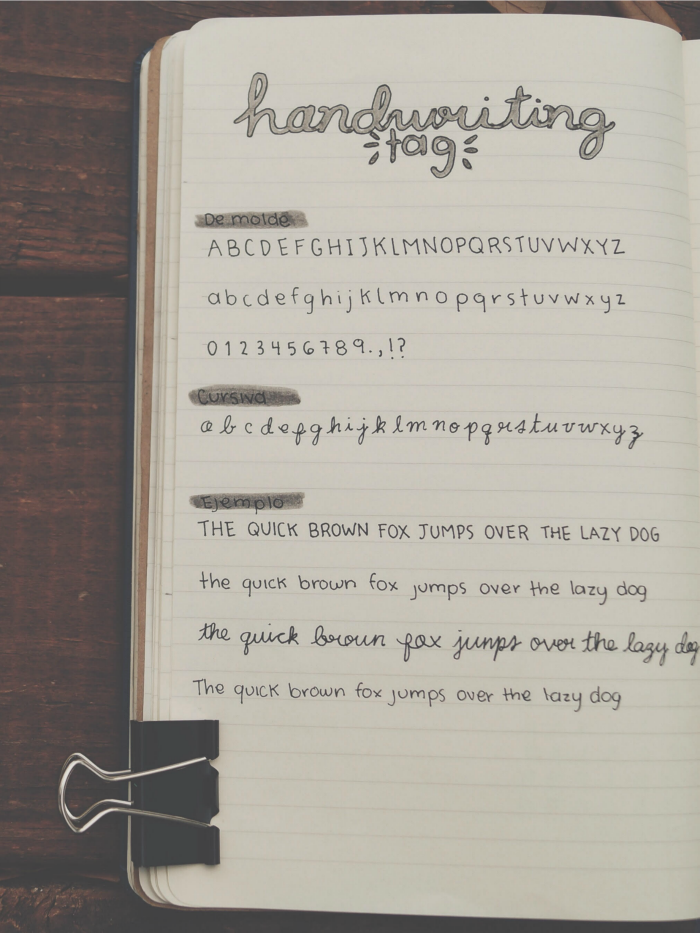 handwriting
tag
De molde
ABCDEFGHIJKLMNOPQRSTUVWXYZ
abcdefghijklmnopqrstuvwxyz
0123456789.,!?
Cursiva
abcdefghijklmnopqrstuvwxyz
Ejemplo
THE QUICK BROWN FOX JUMPS OVER THE LAZY DOG
the quick brown fox jumps over the lazy dog
the quick brown fox jumps over the lazy dog
The quick brown fox jumps over the lazy dog